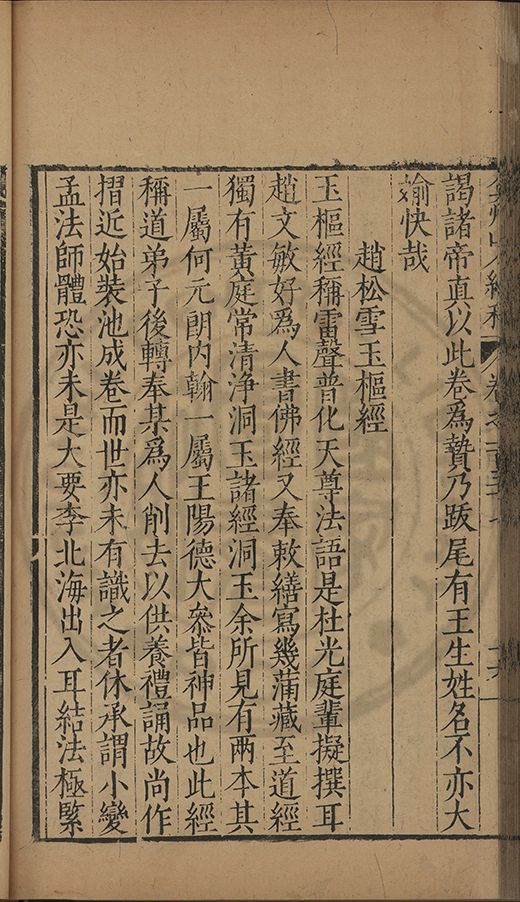 謁諸帝真以此卷爲贄乃跋尾有王生姓名不亦大
愉快哉
趙松雪玉樞經
玉樞經稱雷聲普化天尊法語是杜光庭輩擬撰耳
趙文敏好爲人書佛經又奉敕繕寫幾蒲藏至道經
獨有黃庭常清淨洞玉諸經洞玉余所見有兩本其
一屬何元朗內翰一屬王陽德大叅皆神品也此經
稱道弟子後轉奉某爲人削去以供養禮誦故尚作
摺近始裝池成卷而世亦未有識之者休承謂小變
孟法師體恐亦未是大要李北海出入耳結法極緊